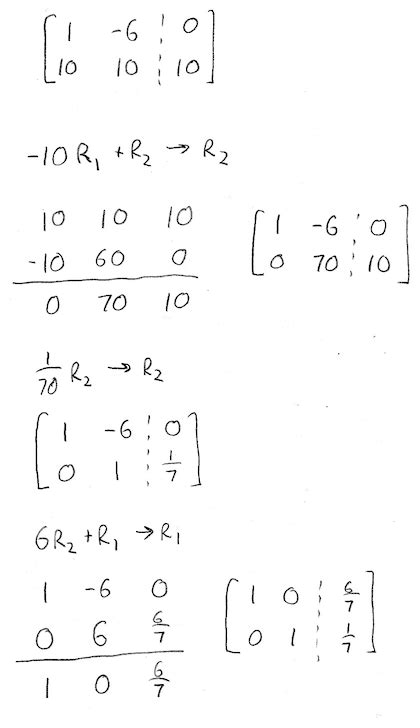 1 -6 0
10 10 10
-10 R₁ + R₂ → R₂
10 10 10
-10 60 0
0 70 10
1 -6 0
0 70 10
1/70 R₂ → R₂
1 -6 0
0 1 1/7
6R₂ + R₁ → R₁
1 -6 0
0 6 6/7
1 0 6/7
1 0 6/7
0 1 1/7